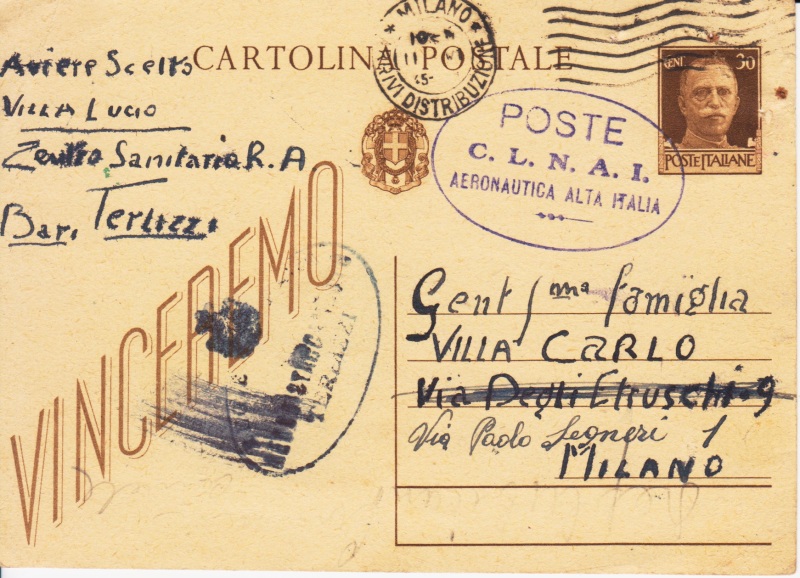 CARTOLINA POSTALE
MILANO
ARRIVI DISTRIBUZIONE
CENT 30
POSTE ITALIANE
POSTE
C. L. N. A. I.
AERONAUTICA ALTA ITALIA
Aviere Scelto
VILLA LUCIO
Sanitario R. A
Bari Terlizzi
VINCEREMO
TERLIZZI
Gent ma famiglia
VILLA CARLO
Via Degli Etruschi 9
Via Paolo Segneri 1
MILANO